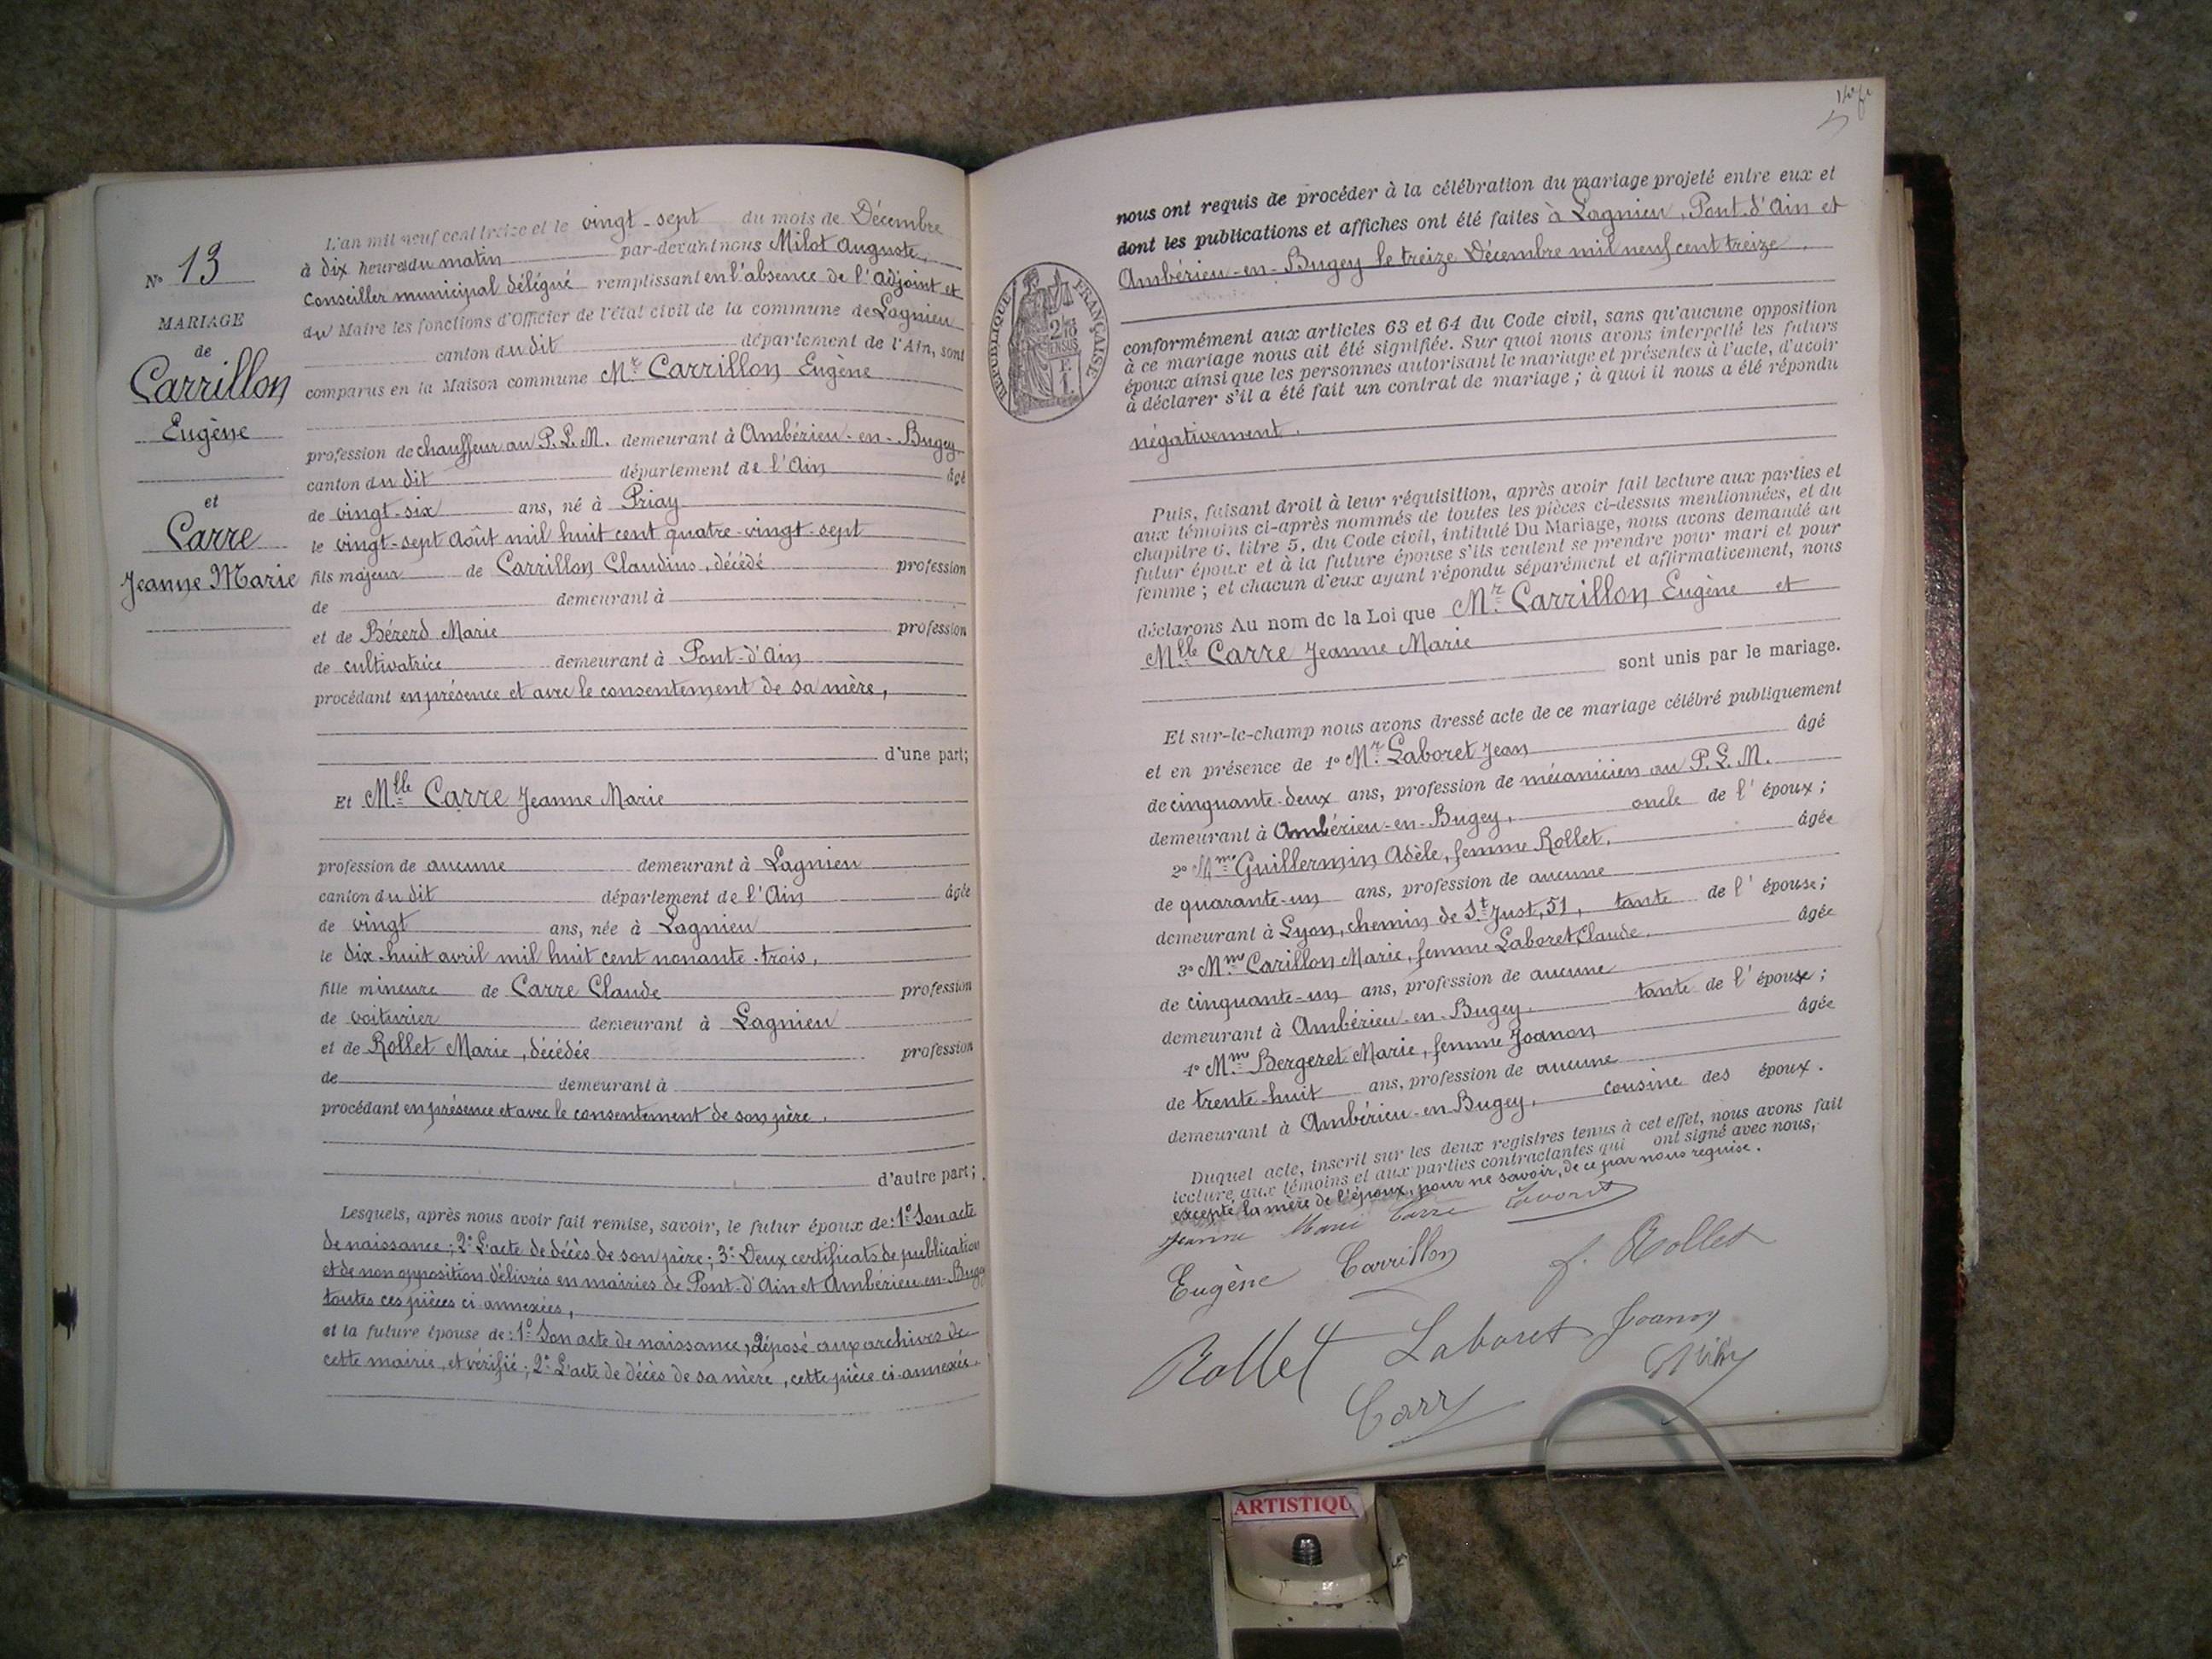 N° 13
MARIAGE
de
Carrillon
Eugène
et
Carre
Jeanne Marie
L'an mil neuf cent treize et le vingt-sept du mois de Décembre
à dix heures du matin par-devant nous Milot Auguste,
Conseiller municipal délégué remplissant en l'absence de l'adjoint et
du Maire les fonctions d'Officier de l'état civil de la commune de Lagnieu
canton du dit département de l'Ain, sont
comparus en la Maison commune Mr Carrillon Eugène
profession de chauffeur au P. L. M. demeurant à Ambérieu-en-Bugey
canton du dit département de l'Ain âgé
de vingt-six ans, né à Priay
le vingt-sept Août mil huit cent quatre-vingt-sept
fils majeur de Carrillon Claudius, décédé profession
de demeurant à
et de Bézerd Marie profession
de cultivatrice demeurant à Pont-d'Ain
procédant en présence et avec le consentement de sa mère,
d'une part;
Et Mlle Carre Jeanne Marie
profession de aucune demeurant à Lagnieu
canton du dit département de l'Ain âgée
de vingt ans, née à Lagnieu
le dix-huit avril mil huit cent nonante-trois,
fille mineure de Carre Claude profession
de voiturier demeurant à Lagnieu
et de Rollet Marie, décédée profession
de demeurant à
procédant en présence et avec le consentement de son père,
d'autre part;
Lesquels, après nous avoir fait remise, savoir, le futur époux de: 1° Son acte
de naissance; 2° L'acte de décès de son père; 3° Deux certificats de publication
et de non opposition délivrés en mairies de Pont-d'Ain et Ambérieu-en-Bugey
toutes ces pièces ci-annexées,
et la future épouse de: 1° Son acte de naissance, déposé aux archives de
cette mairie, et vérifié; 2° L'acte de décès de sa mère, cette pièce ci-annexée.
nous ont requis de procéder à la célébration du mariage projeté entre eux et
dont les publications et affiches ont été faites à Lagnieu, Pont-d'Ain et
Ambérieu-en-Bugey le treize Décembre mil neuf cent treize,
RÉPUBLIQUE FRANÇAISE
conformément aux articles 63 et 64 du Code civil, sans qu'aucune opposition
à ce mariage nous ait été signifiée. Sur quoi nous avons interpellé les futurs
époux ainsi que les personnes autorisant le mariage et présentes à l'acte, d'avoir
à déclarer s'il a été fait un contrat de mariage; à quoi il nous a été répondu
négativement.
Puis, faisant droit à leur réquisition, après avoir fait lecture aux parties et
aux témoins ci-après nommés de toutes les pièces ci-dessus mentionnées, et du
chapitre 6, titre 5, du Code civil, intitulé Du Mariage, nous avons demandé au
futur époux et à la future épouse s'ils veulent se prendre pour mari et pour
femme; et chacun d'eux ayant répondu séparément et affirmativement, nous
déclarons Au nom de la Loi que Mr Carrillon Eugène et
Mlle Carre Jeanne Marie
sont unis par le mariage.
Et sur-le-champ nous avons dressé acte de ce mariage célébré publiquement
et en présence de 1° Mr Laboret Jean âgé
de cinquante-deux ans, profession de mécanicien au P. L. M.
demeurant à Ambérieu-en-Bugey, oncle de l'époux;
2° Mme Guillermin Adèle, femme Rollet, âgée
de quarante-un ans, profession de aucune
demeurant à Lyon, chemin de St Just, 51, tante de l'épouse;
3° Mme Carillon Marie, femme Laboret Claude, âgée
de cinquante-un ans, profession de aucune
demeurant à Ambérieu-en-Bugey, tante de l'époux;
4° Mme Bergeret Marie, femme Joanon âgée
de trente-huit ans, profession de aucune
demeurant à Ambérieu-en-Bugey, cousine des époux.
Duquel acte, inscrit sur les deux registres tenus à cet effet, nous avons fait
lecture aux témoins et aux parties contractantes qui ont signé avec nous,
excepté la mère de l'époux, pour ne savoir, de ce par nous requise.
Jeanne Marie Carre Laboret
Eugène Carrillon f. Rollet
Rollet Laboret Joanon
Carre
ARTISTIQU